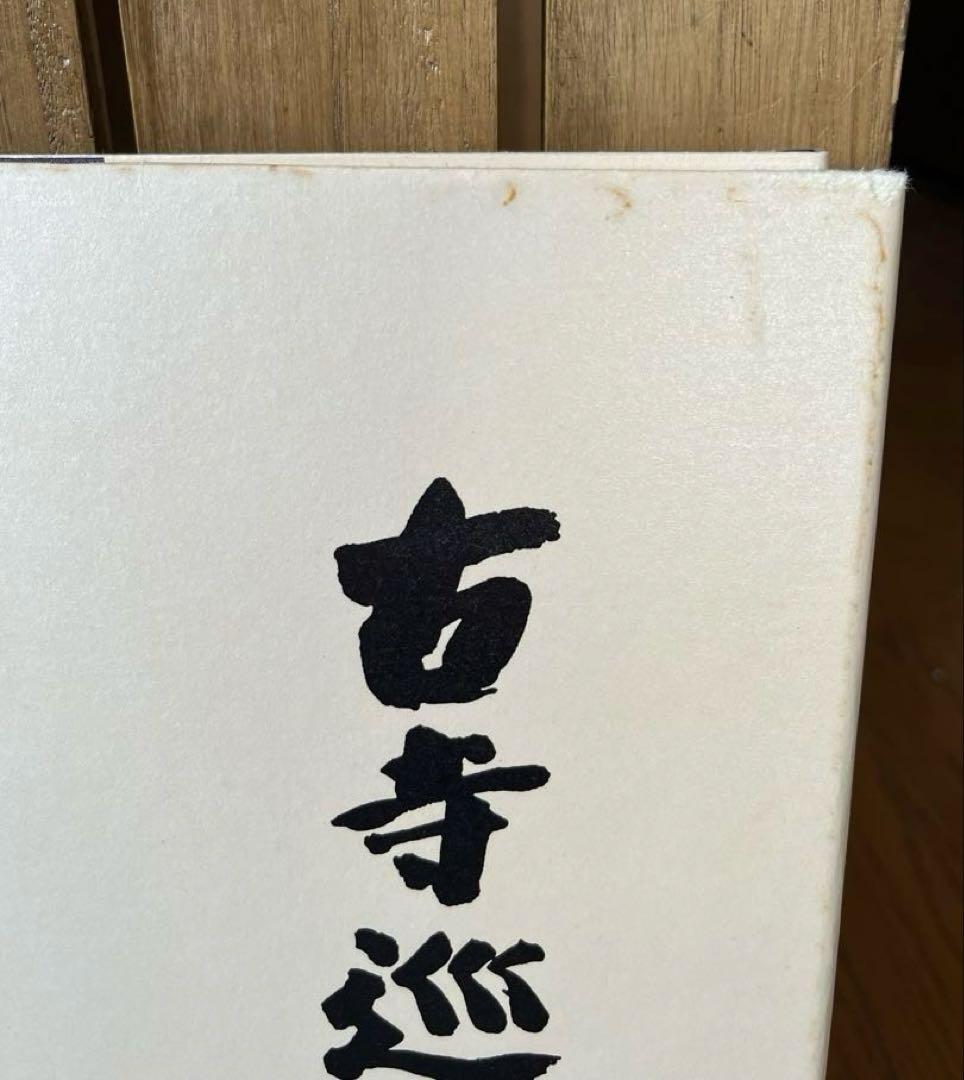 古寺巡